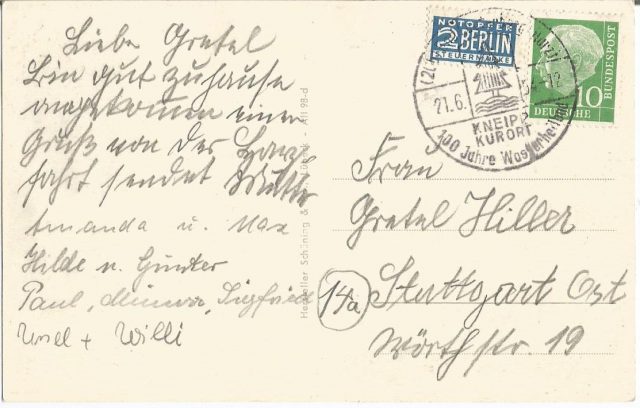 Liebe Gretel
Bin gut zuhause
angekommen einen
Gruß von der
fahrt sendet Mutter
Amanda u. Max
Hilde u. Günter
Paul, Minna, Siegfried
Ursel + Willi
Hersteller Schöning &
NOTOPFER
2 BERLIN
STEUERMARKE
21.6.
KNEIPP
KURORT
100 Jahre Wasserheil
10
DEUTSCHE
BUNDESPOST
Frau
Gretel Hiller
14a
Stuttgart Ost
Wörthstr. 19